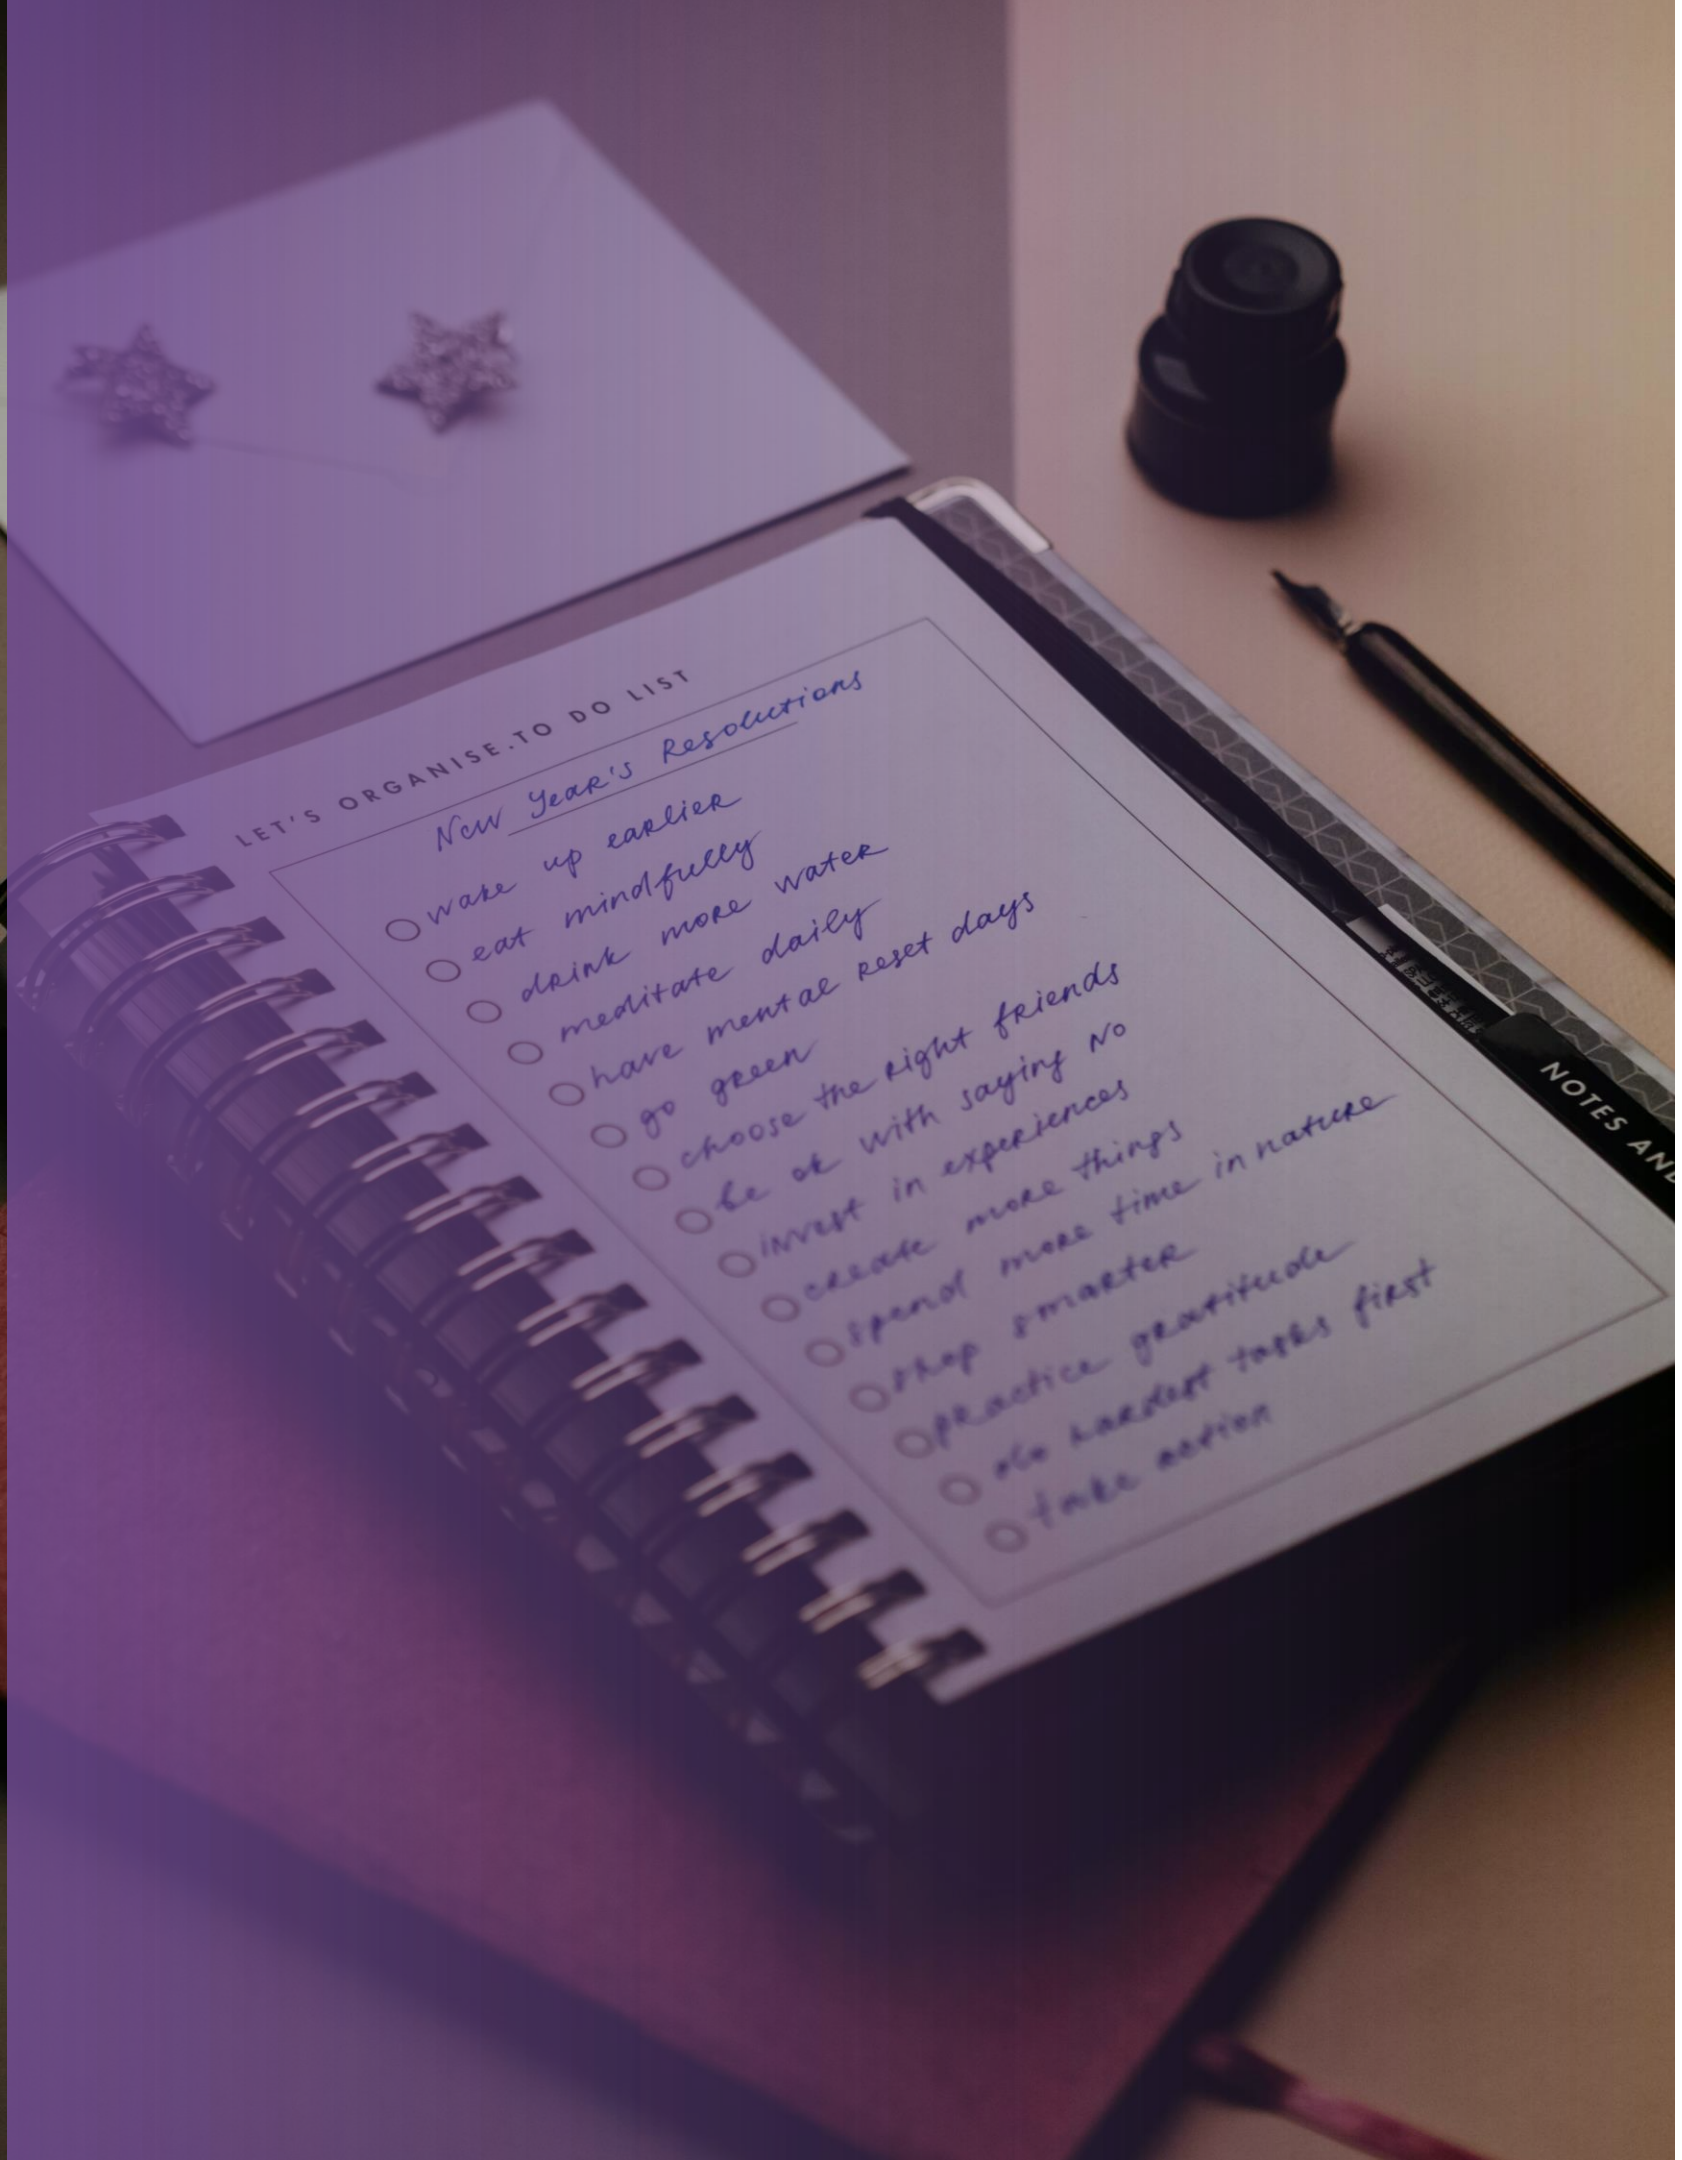 LET'S ORGANISE.TO DO LIST
New Year's Resolutions
wake up earlier
eat mindfully
drink more water
meditate daily
have mental reset days
go green
choose the right friends
be ok with saying No
invest in experiences
create more things
spend more time in nature
shop smarter
practice gratitude
do hardest tasks first
take action
NOTES AND